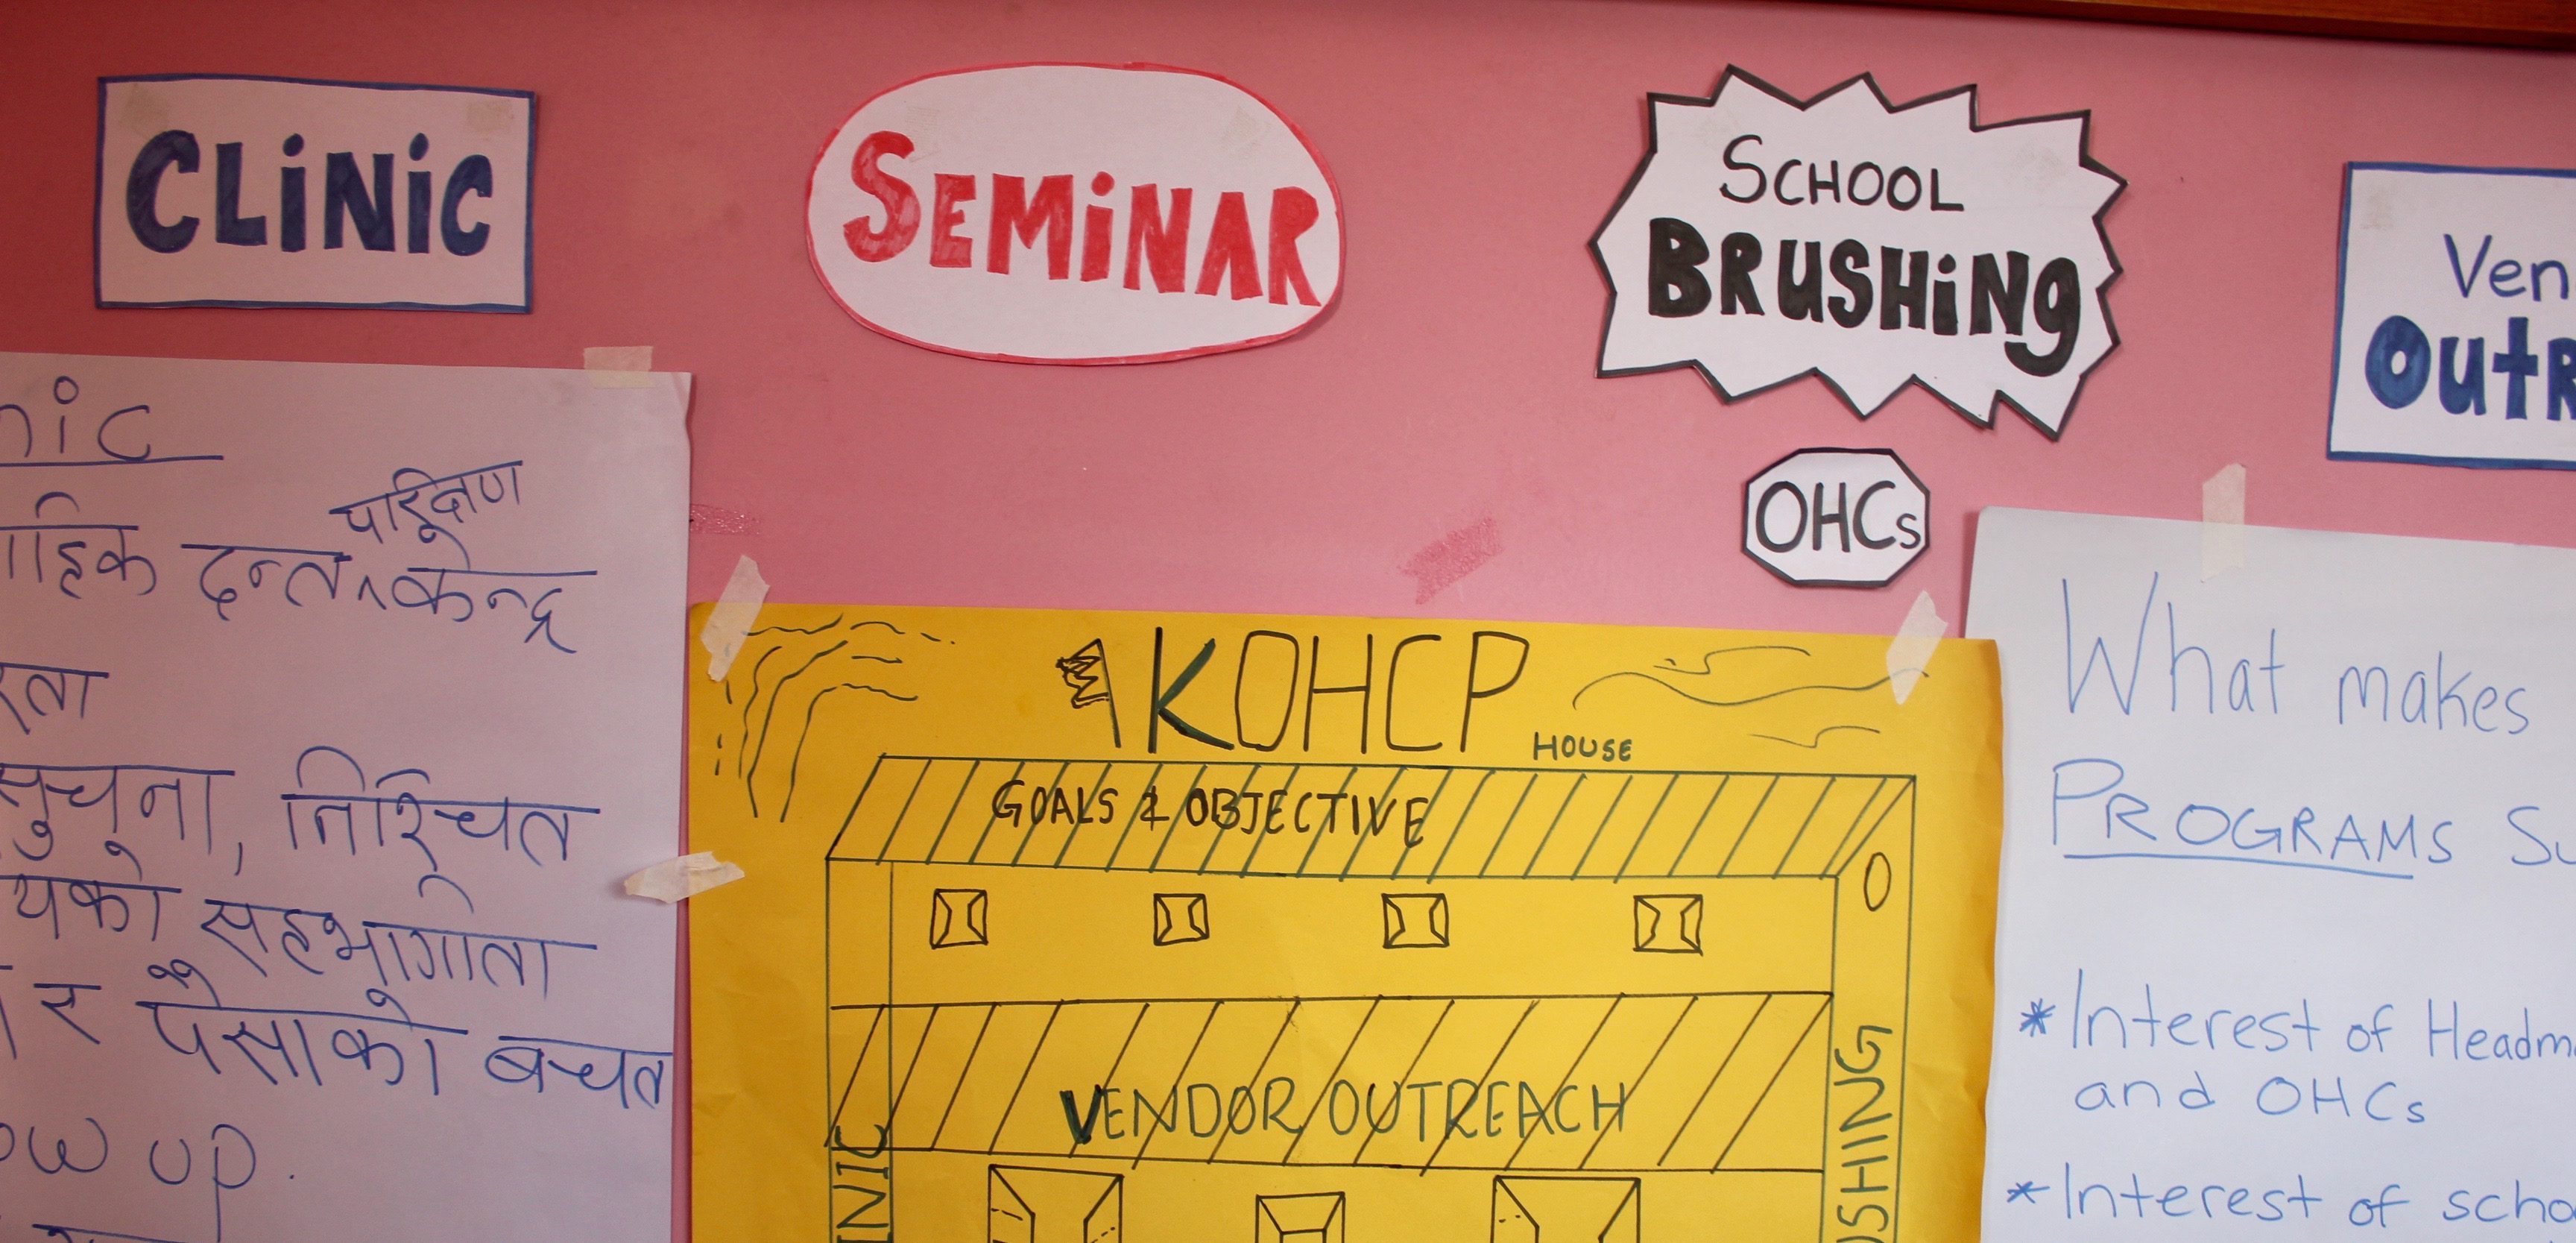 CLiNiC
SEMiNAR
SCHOOL
BRUSHiNg
OHCs
Ven
OutR
nic
परिक्षण
दन्त ^ केन्द्र
सुचना, निश्चित
सहभागीता
र पैसाको बचत
ow up.
KOHCP
HOUSE
GOALS & OBJECTIVE
VENDOR OUTREACH
INIC
SHING
What makes
PROGRAMS Su
* Interest of Headm
and OHCs
* Interest of scho